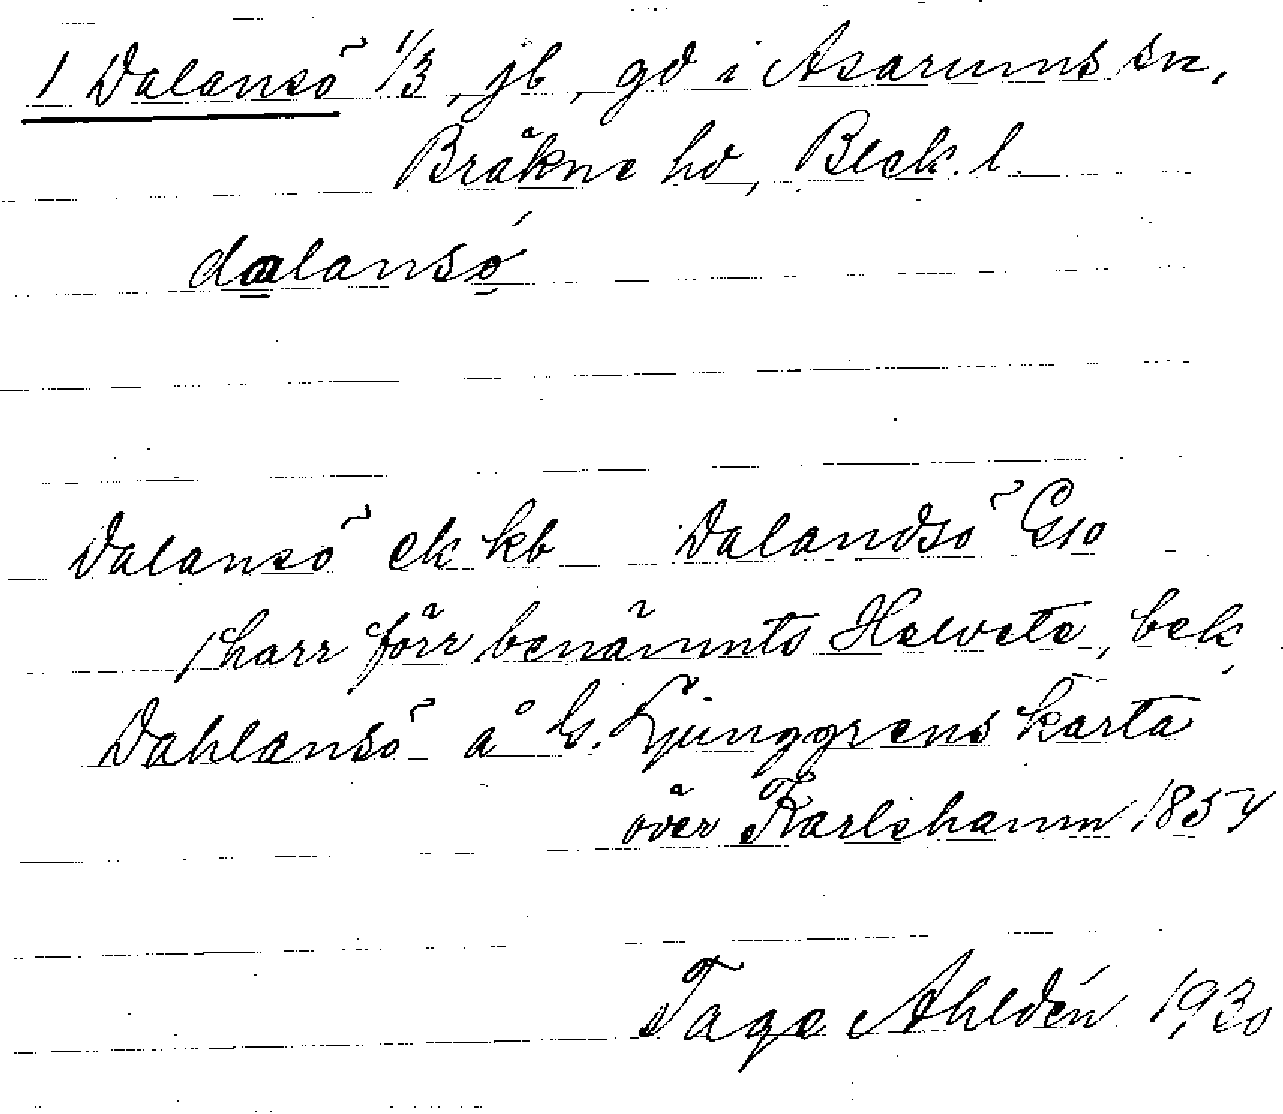 1 Dalansö 1/3, jb, gd i Asarums sn,
Bräkne hd, Blek. l.
dalansǫ́
Dalansö ek kb Dalandsö GS10
harr förr benämnts Helvete, bek
Dahlansö å G. Ljunggrens karta
över Karlshamn 1854
Tage Ahldén 1930